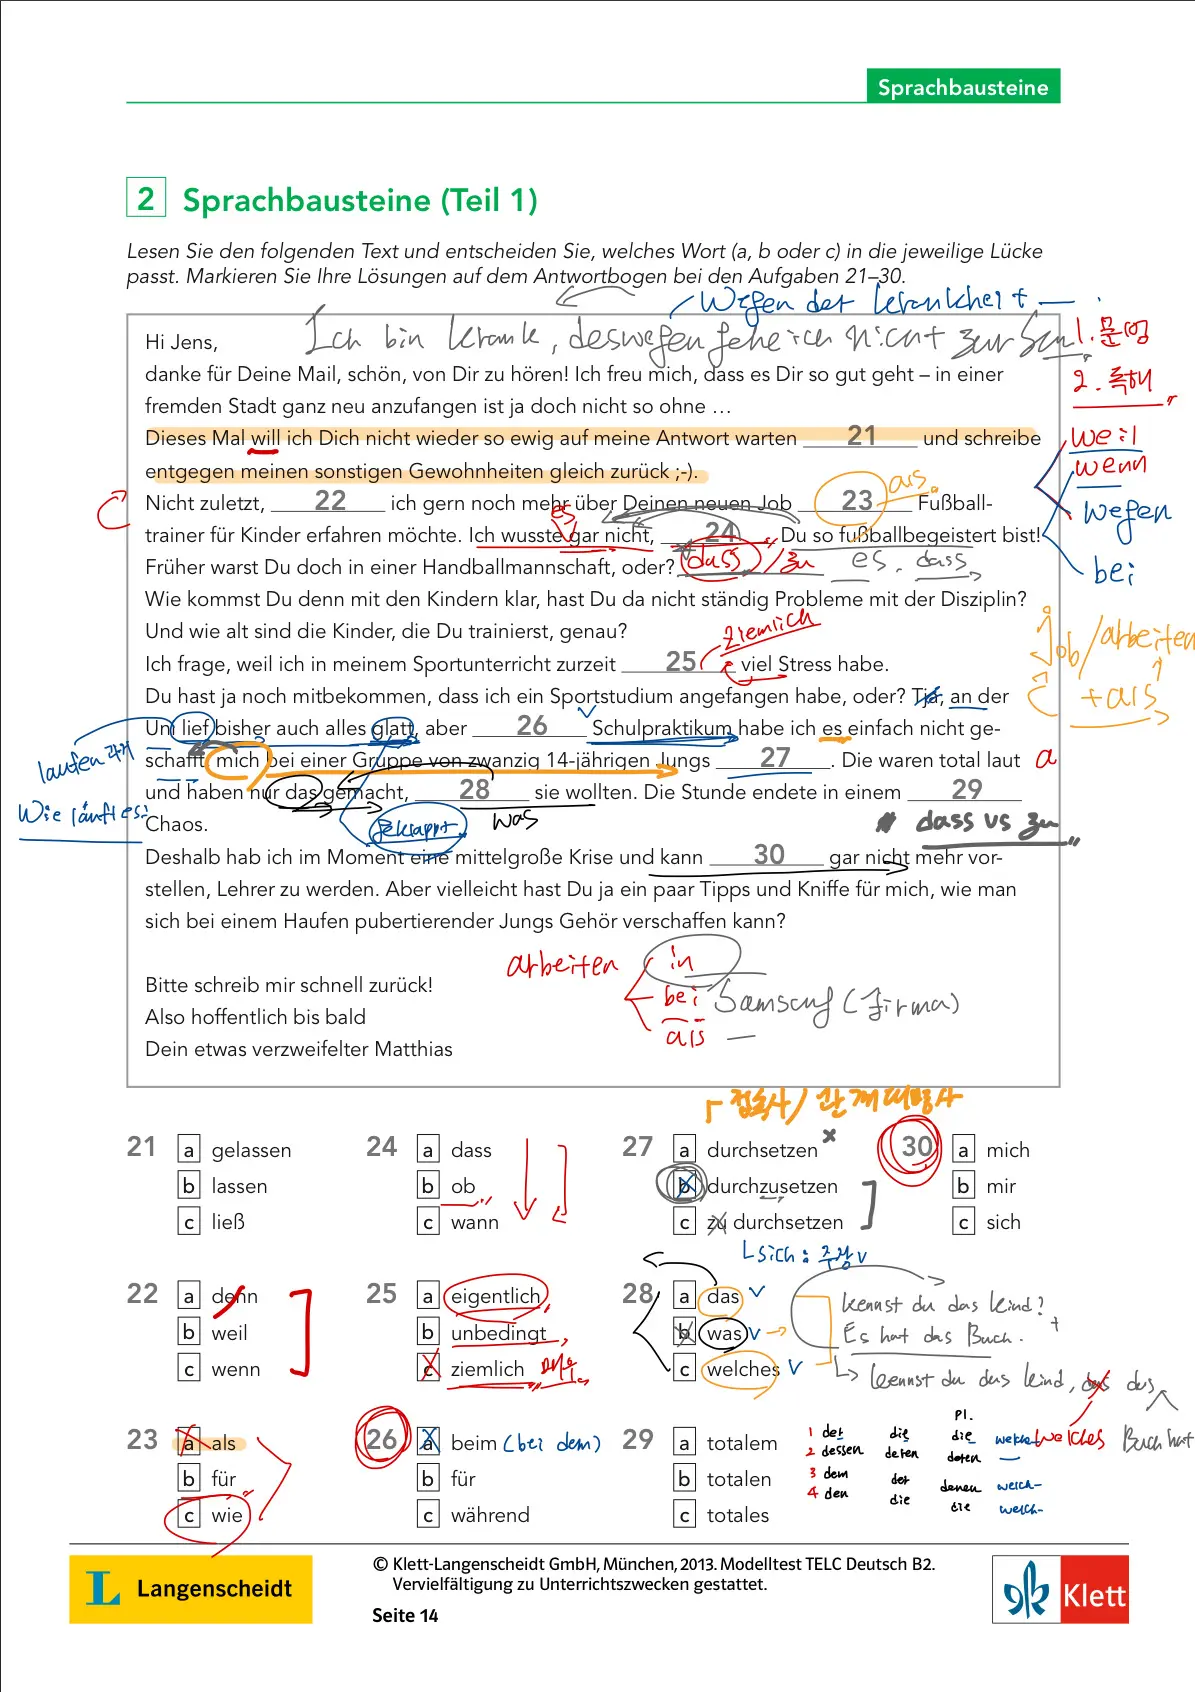 Sprachbausteine
2 Sprachbausteine (Teil 1)
Lesen Sie den folgenden Text und entscheiden Sie, welches Wort (a, b oder c) in die jeweilige Lücke
passt. Markieren Sie Ihre Lösungen auf dem Antwortbogen bei den Aufgaben 21–30.
Wegen der krankheit
Hi Jens,
Ich bin krank, deswegen gehe ich nicht zur
1. 문법
2. 독해
danke für Deine Mail, schön, von Dir zu hören! Ich freu mich, dass es Dir so gut geht – in einer
fremden Stadt ganz neu anzufangen ist ja doch nicht so ohne …
Dieses Mal will ich Dich nicht wieder so ewig auf meine Antwort warten 21 und schreibe
weil
entgegen meinen sonstigen Gewohnheiten gleich zurück ;-).
wenn
als
Nicht zuletzt, 22 ich gern noch mehr über Deinen neuen Job 23 Fußball-
wegen
es
trainer für Kinder erfahren möchte. Ich wusste gar nicht, 24 Du so fußballbegeistert bist!
Früher warst Du doch in einer Handballmannschaft, oder? dass / zu es. dass
bei
Wie kommst Du denn mit den Kindern klar, hast Du da nicht ständig Probleme mit der Disziplin?
Und wie alt sind die Kinder, die Du trainierst, genau?
ziemlich
Job / arbeiten
+ als
Ich frage, weil ich in meinem Sportunterricht zurzeit 25 viel Stress habe.
Du hast ja noch mitbekommen, dass ich ein Sportstudium angefangen habe, oder? Tja, an der
Uni lief bisher auch alles glatt, aber 26 Schulpraktikum habe ich es einfach nicht ge-
laufen 과거
schafft mich bei einer Gruppe von zwanzig 14-jährigen Jungs 27 . Die waren total laut
a
und haben nur das gemacht, 28 sie wollten. Die Stunde endete in einem 29
Wie läuft es?
Chaos.
geklappt was
dass vs zu
Deshalb hab ich im Moment eine mittelgroße Krise und kann 30 gar nicht mehr vor-
stellen, Lehrer zu werden. Aber vielleicht hast Du ja ein paar Tipps und Kniffe für mich, wie man
sich bei einem Haufen pubertierender Jungs Gehör verschaffen kann?
arbeiten in
bei Samsung (Firma)
als
Bitte schreib mir schnell zurück!
Also hoffentlich bis bald
Dein etwas verzweifelter Matthias
접속사 / 관계대명사
21 a gelassen
b lassen
c ließ
24 a dass
b ob
c wann
27 a durchsetzen
b durchzusetzen
c zu durchsetzen
sich :
30 a mich
b mir
c sich
22 a denn
b weil
c wenn
25 a eigentlich
b unbedingt
c ziemlich
28 a das
b was
c welches
kennst du das kind?
Es hat das Buch.
kennst du das kind, das das
welches Buch hat
23 a als
b für
c wie
26 a beim (bei dem)
b für
c während
29 a totalem
b totalen
c totales
pl.
1 der die die
2 dessen deren deren
3 dem der denen welch-
4 den die die welch-
Langenscheidt
© Klett-Langenscheidt GmbH, München, 2013. Modelltest TELC Deutsch B2.
Vervielfältigung zu Unterrichtszwecken gestattet.
Seite 14
Klett